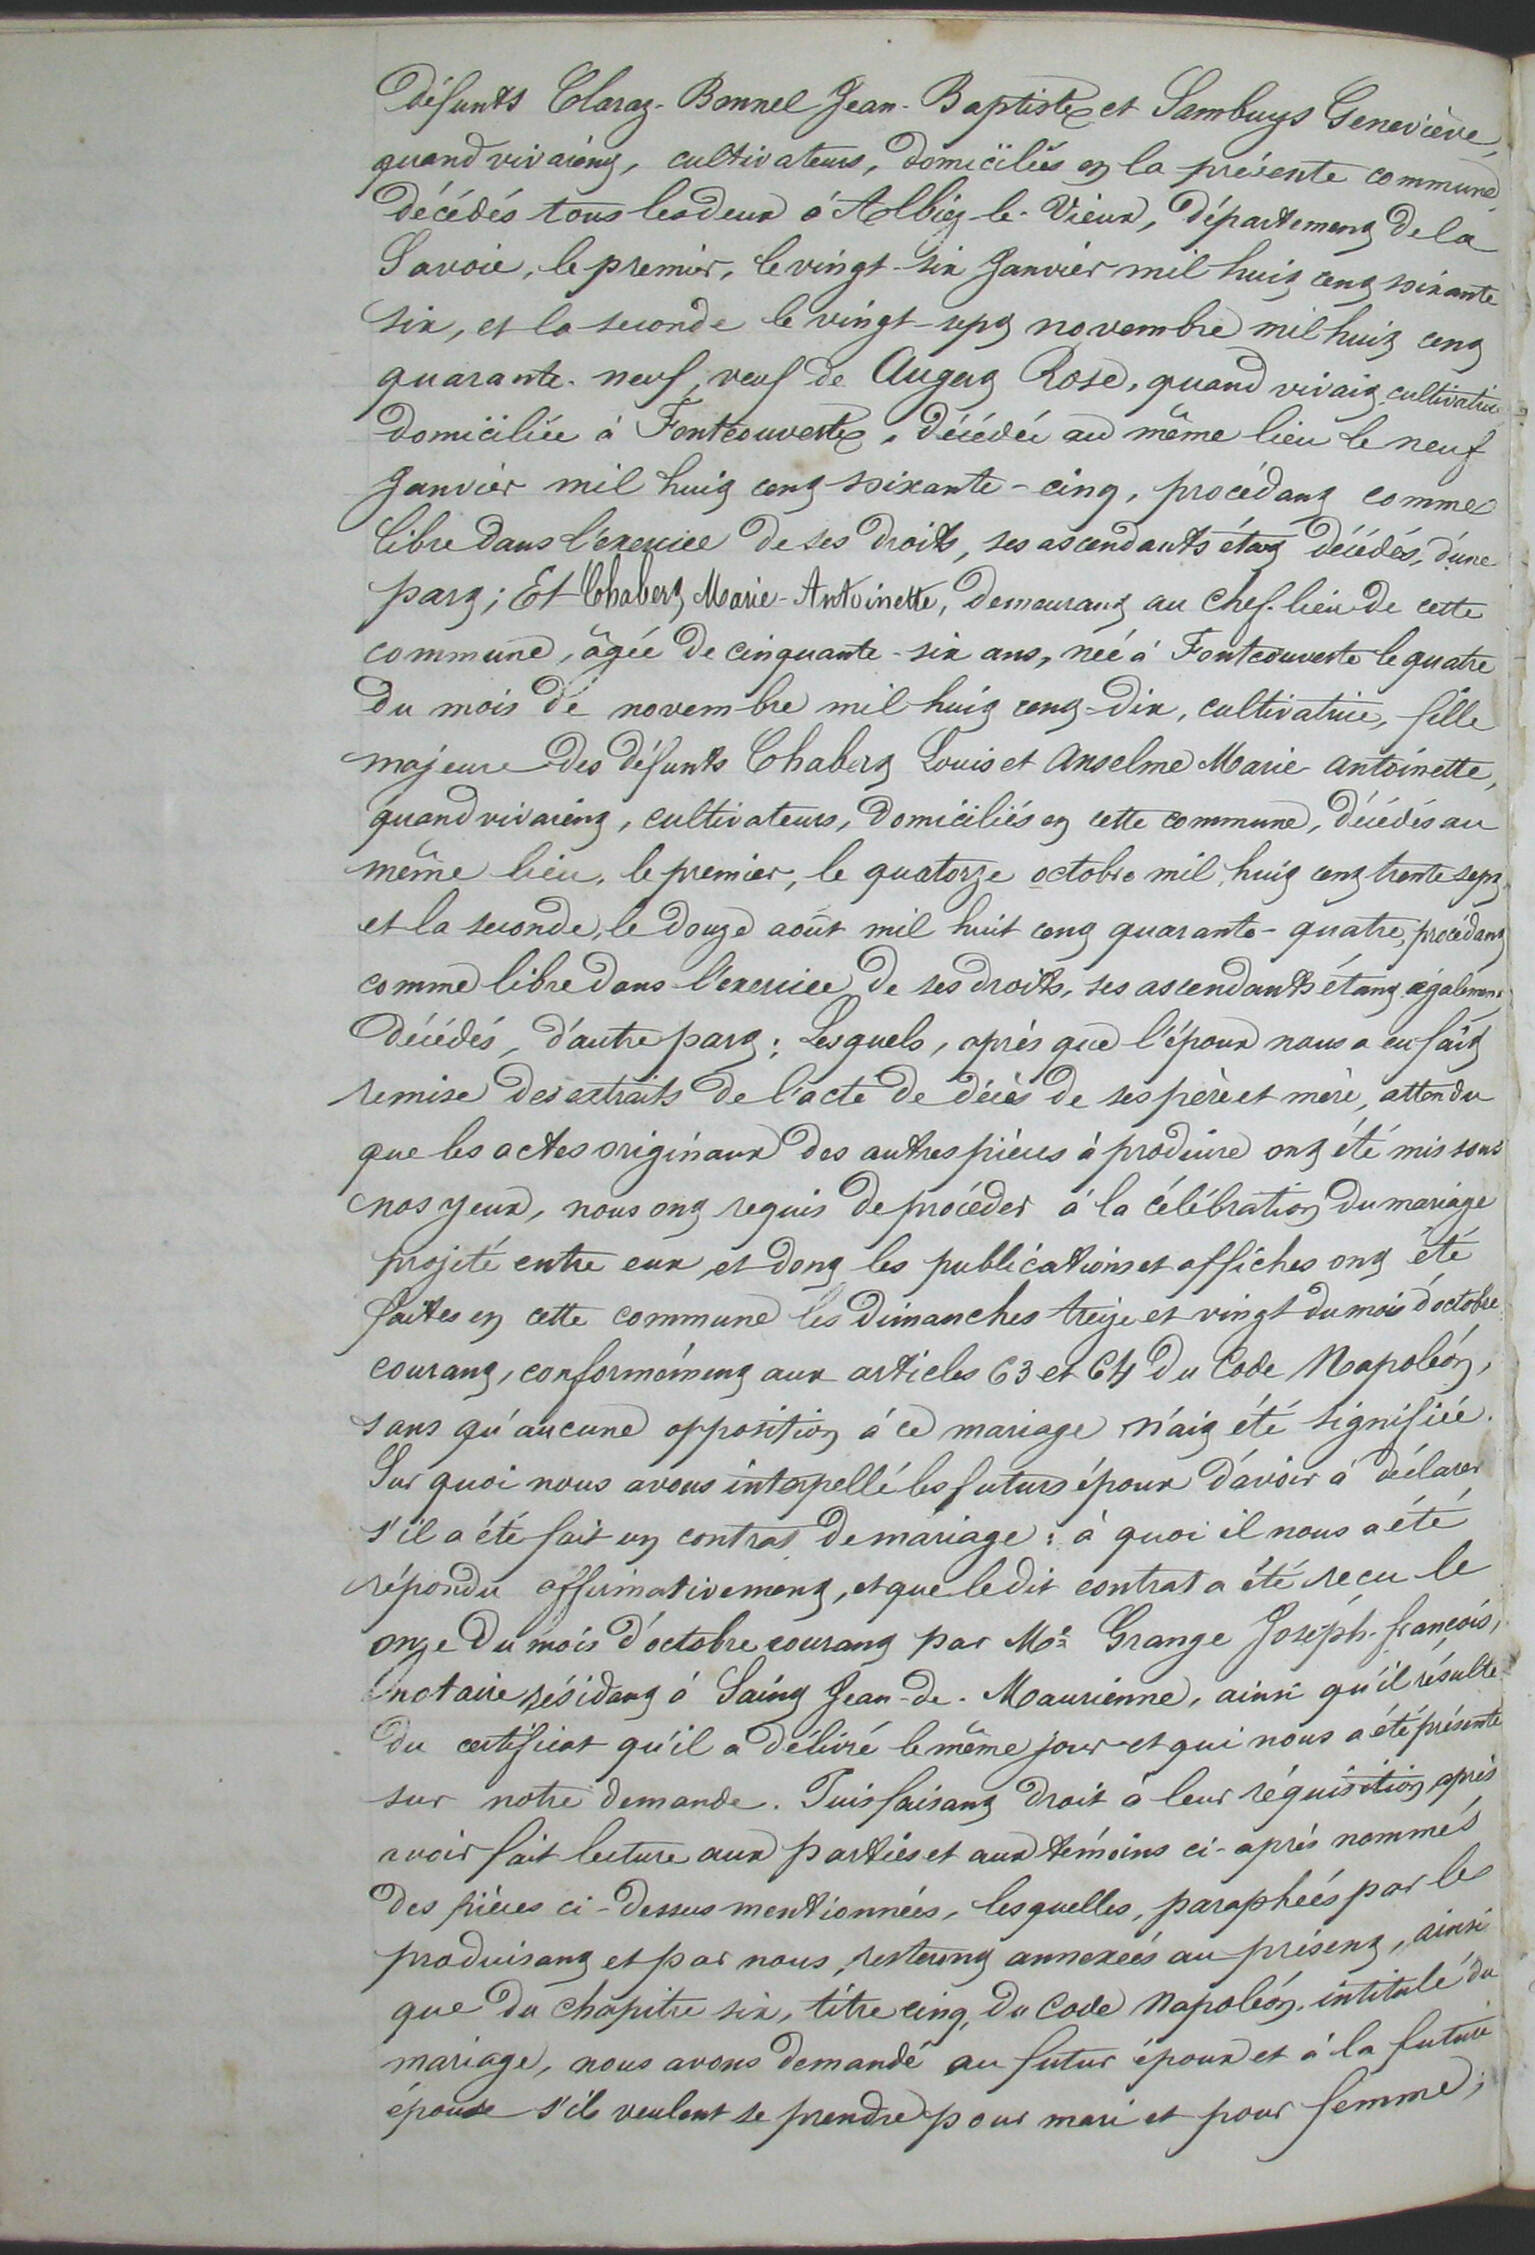 défunts Claraz-Bonnel Jean-Baptiste et Sambuys Geneviève,
quand vivaient, cultivateurs, domiciliés en la présente commune,
décédés tous les deux à Albiez-le-Vieux, département de la
Savoie, le premier, le vingt-six Janvier mil huit cent soixante
six, et la seconde le vingt-sept novembre mil huit cent
quarante-neuf, veuf de Augert Rose, quand vivait cultivatrice
domiciliée à Fontcouverte, décédée au même lieu le neuf
Janvier mil huit cent soixante-cinq, procédant comme
libre dans l'exercice de ses droits, ses ascendants étant décédés, d'une
part; Et Chabert Marie-Antoinette, demeurant au chef-lieu de cette
commune, âgée de cinquante-six ans, née à Fontcouverte le quatre
du mois de novembre mil huit cent-dix, cultivatrice, fille
majeure des défunts Chabert Louis et Anselme Marie Antoinette,
quand vivaient, cultivateurs, domiciliés en cette commune, décédés au
même lieu, le premier, le quatorze octobre mil huit cent trente sept,
et la seconde, le douze août mil huit cent quarante-quatre, procédant
comme libre dans l'exercice de ses droits, ses ascendants étant également
décédés, d'autre part; Lesquels, après que l'époux nous a eu fait
remise des extraits de l'acte de décès de ses père et mère, attendu
que les actes originaux des autres pièces à produire ont été mis sous
nos yeux, nous ont requis de procéder à la célébration du mariage
projeté entre eux et dont les publications et affiches ont été
faites en cette commune les dimanches treize et vingt du mois d'octobre
courant, conformément aux articles 63 et 64 du Code Napoléon,
sans qu'aucune opposition à ce mariage n'ait été signifiée.
Sur quoi nous avons interpellé les futurs époux d'avoir à déclarer
s'il a été fait un contrat de mariage: à quoi il nous a été
répondu affirmativement, et que ledit contrat a été reçu le
onze du mois d'octobre courant par Me Grange Joseph-françois,
notaire résidant à Saint Jean-de-Maurienne, ainsi qu'il résulte
du certificat qu'il a délivré le même jour et qui nous a été présenté
sur notre demande. Puis faisant droit à leur réquisition, après
avoir fait lecture aux parties et aux témoins ci-après nommés
des pièces ci-dessus mentionnées, lesquelles, paraphées par le
produisant et par nous, resteront annexées au présent, ainsi
que du chapitre six, titre cinq, du Code Napoléon, intitulé du
mariage, nous avons demandé au futur époux et à la future
épouse s'ils veulent se prendre pour mari et pour femme;